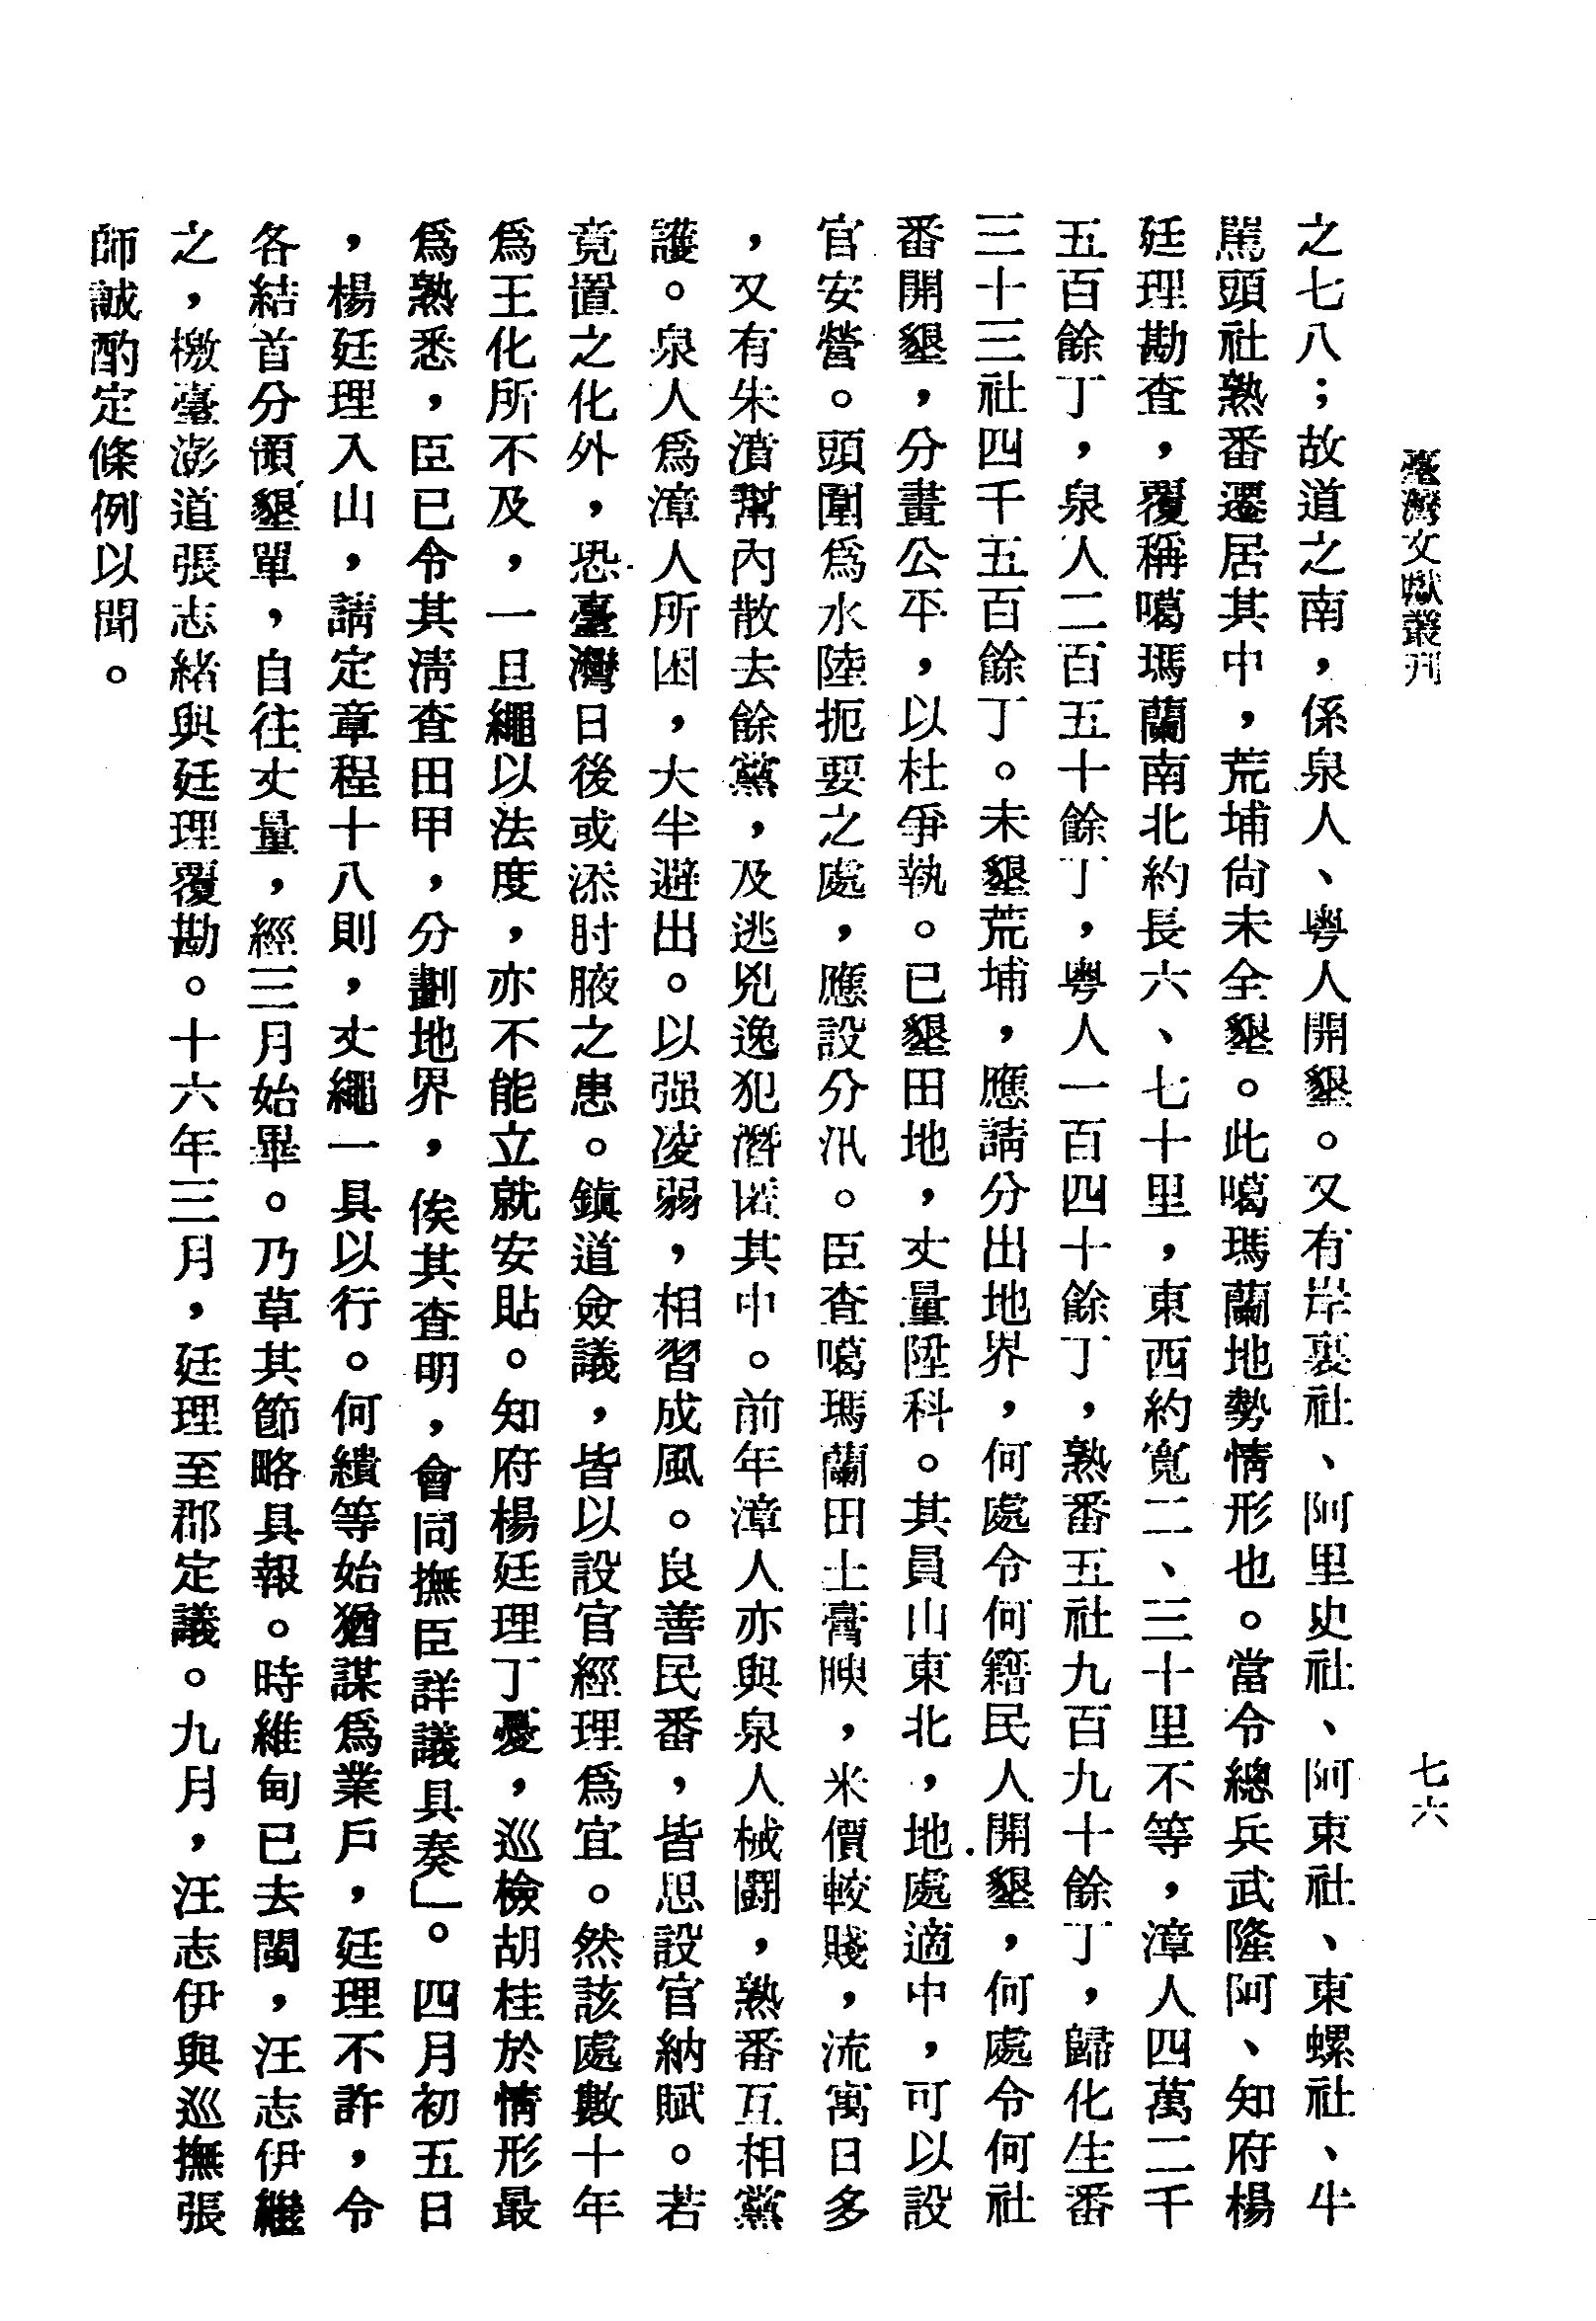 臺灣文獻叢刊
七六
之七八；故道之南，係泉人、粤人開墾。又有岸裏社、阿里史社、阿束社、東螺社、牛
罵頭社熟番遷居其中，荒埔尙未全墾。此噶瑪蘭地勢情形也。當令總兵武隆阿、知府楊
廷理勘查，覆稱噶瑪蘭南北約長六、七十里，東西約寬二、三十里不等，漳人四萬二千
五百餘丁，泉人二百五十餘丁，粤人一百四十餘丁，熟番五社九百九十餘丁，歸化生番
三十三社四千五百餘丁。未墾荒埔，應請分出地界，何處令何籍民人開墾，何處令何社
番開墾，分畫公平，以杜爭執。已墾田地，丈量陞科。其員山東北，地處適中，可以設
官安營。頭圍爲水陸扼要之處，應設分汛。臣查噶瑪蘭田土膏腴，米價較賤，流寓日多
，又有朱濆幫內散去餘黨，及逃兇逸犯潛匿其中。前年漳人亦與泉人械鬪，熟番互相黨
護。泉人爲漳人所困，大半避出。以强凌弱，相習成風。良善民番，皆思設官納賦。若
竟置之化外，恐臺灣日後或添肘腋之患。鎮道僉議，皆以設官經理爲宜。然該處數十年
爲王化所不及，一旦繩以法度，亦不能立就安貼。知府楊廷理丁憂，巡檢胡桂於情形最
爲熟悉，臣已令其淸查田甲，分劃地界，俟其查明，會同撫臣詳議具奏」。四月初五日
，楊廷理入山，請定章程十八則，丈繩一具以行。何繢等始猶謀爲業戶，廷理不許，令
各結首分頒墾單，自往丈量，經三月始畢。乃草其節略具報。時維甸已去閩，汪志伊繼
之，檄臺澎道張志緒與廷理覆勘。十六年三月，廷理至郡定議。九月，汪志伊與巡撫張
師誠酌定條例以聞。